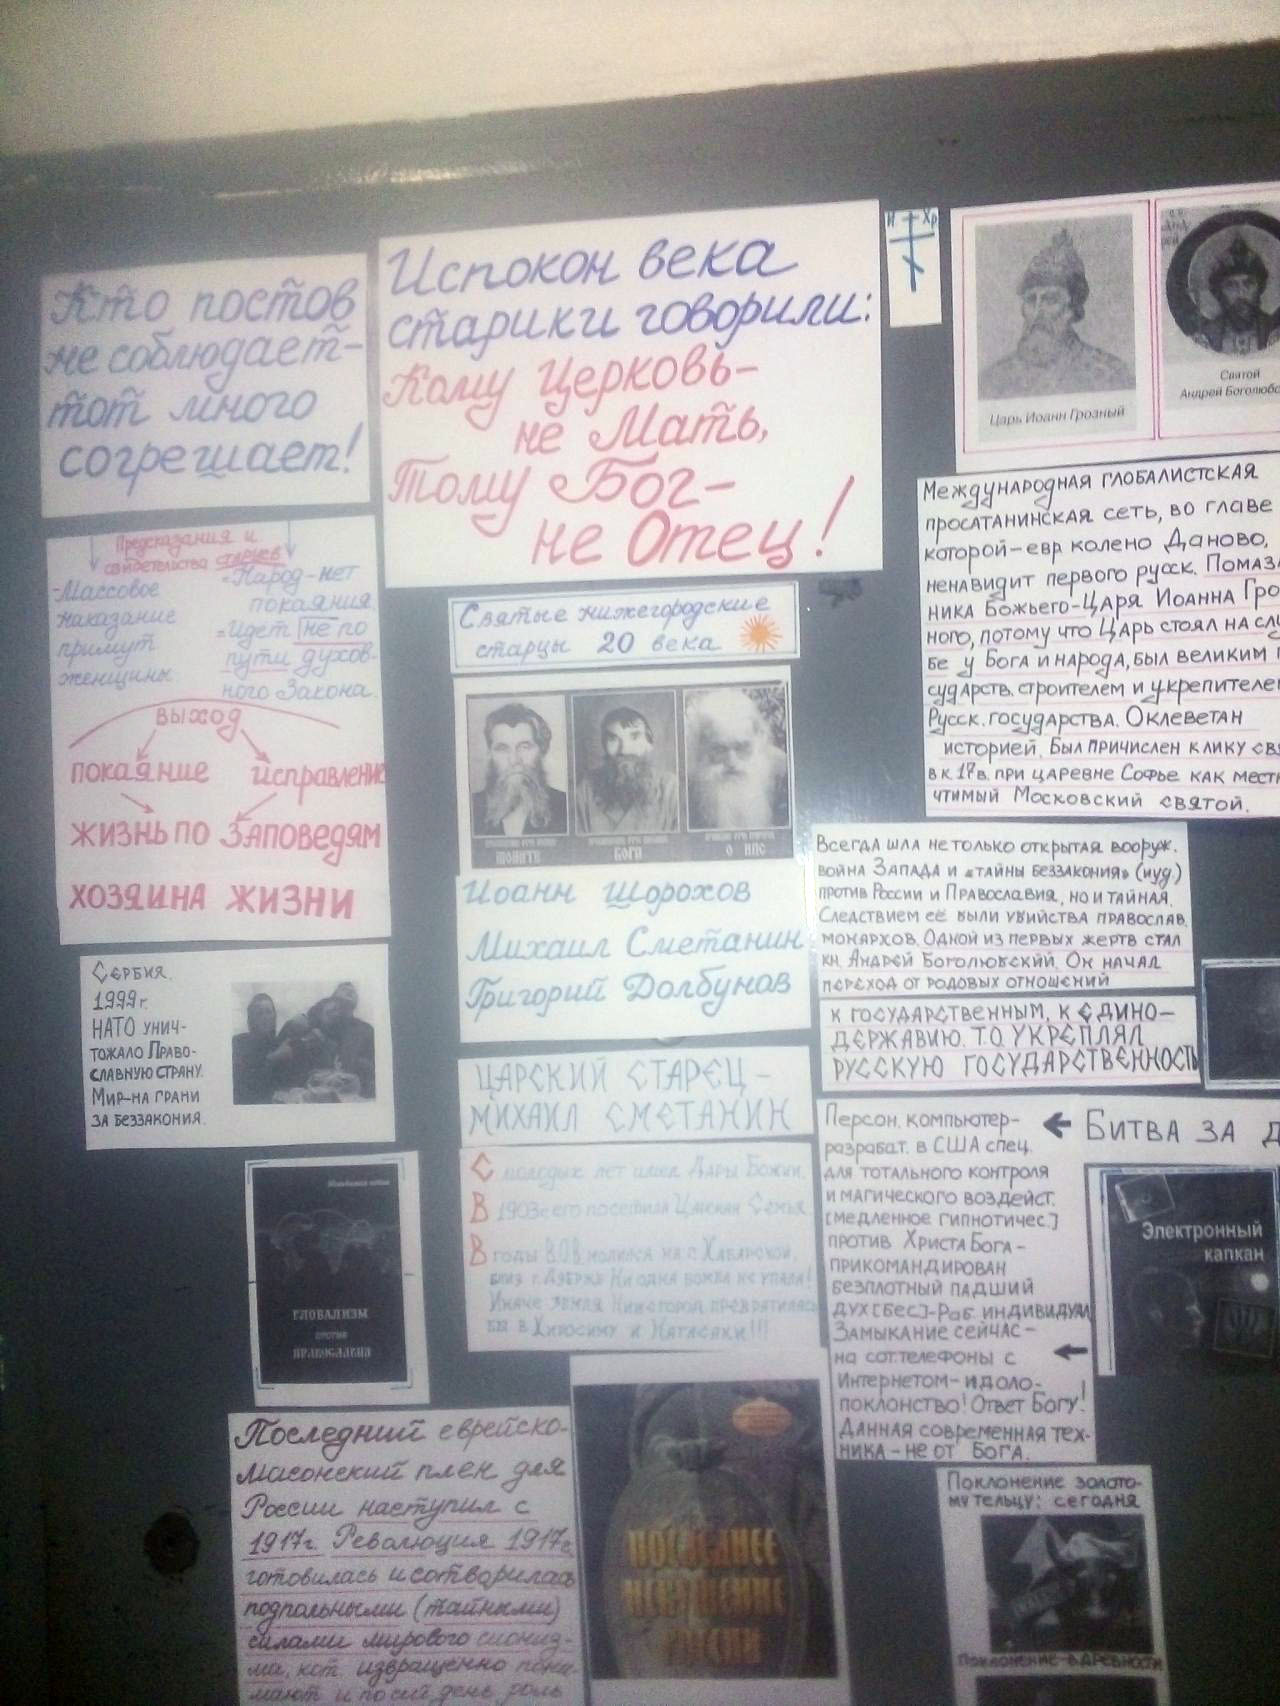 Кто постов
не соблюдает-
тот много
согрешает!
Испокон века
старики говорили:
Кому Церковь-
не Мать,
Тому Бог-
не Отец!
И Хр
Царь Иоанн Грозный
Святой
Андрей Боголюбс
Предсказания и
свидетельства старцев
-Массовое
наказание
примут
женщины.
-Народ-нет
покаяния.
-Идет не по
пути духов-
ного Закона.
выход
покаяние исправление
жизнь по Заповедям
хозяина жизни
Святые нижегородские
старцы 20 века
БОГИ
О НАС
Иоанн Шорохов
Михаил Сметанин
Григорий Долбунов
Царский старец-
Михаил Сметанин
С молодых лет имел Дары Божии.
В 1903г его посетила Царская Семья.
В годы В.О.В. молился на с. Хабарской,
близ г. Ни одна бомба не упала!
Иначе земля Нижегород. превратилась
бы в Хиросиму и Нагасаки!!!
Международная глобалистская
просатанинская сеть, во главе
которой-евр колено Даново,
ненавидит первого русск. Помаза
ника Божьего-Царя Иоанна Гро
ного, потому что Царь стоял на слу
бе у Бога и народа, был великим г
сударств. строителем и укрепителем
Русск. государства. Оклеветан
историей. Был причислен к лику свя
в к. 17 в. при царевне Софье как местн
чтимый Московский святой.
Всегда шла не только открытая вооруж.
война Запада и «тайны беззакония» (иуд.)
против России и Православия, но и тайная.
Следствием её были убийства православ.
монархов. Одной из первых жертв стал
кн. Андрей Боголюбский. Он начал
переход от родовых отношений
к государственным, к едино-
державию. Т.О. укреплял
русскую государственность
Сербия.
1999г.
НАТО унич-
тожало Право-
славную страну.
Мир-на грани
за беззакония.
Глобализм
против
Православия
Персон. компьютер-
разрабат. в США спец.
для тотального контроля
и магического воздейст.
[медленное гипнотичес.]
против Христа Бога-
прикомандирован
безплотный падший
дух [бес]-раб. индивидуал
Замыкание сейчас-
на сот.телефоны с
Интернетом-идоло-
поклонство! Ответ Богу!
Данная современная тех-
ника-не от Бога.
← Битва за д
Электронный
капкан
←
Последний еврейско-
масонский плен для
России наступил с
1917г. Революция 1917г
готовилась и сотворилась
подпольными (тайными)
силами мирового сиониз-
ма, кот. извращенно пони-
мают и по сей день роль
Последнее
искушение
России
Поклонение золото-
му тельцу: сегодня
Поклонение в древности